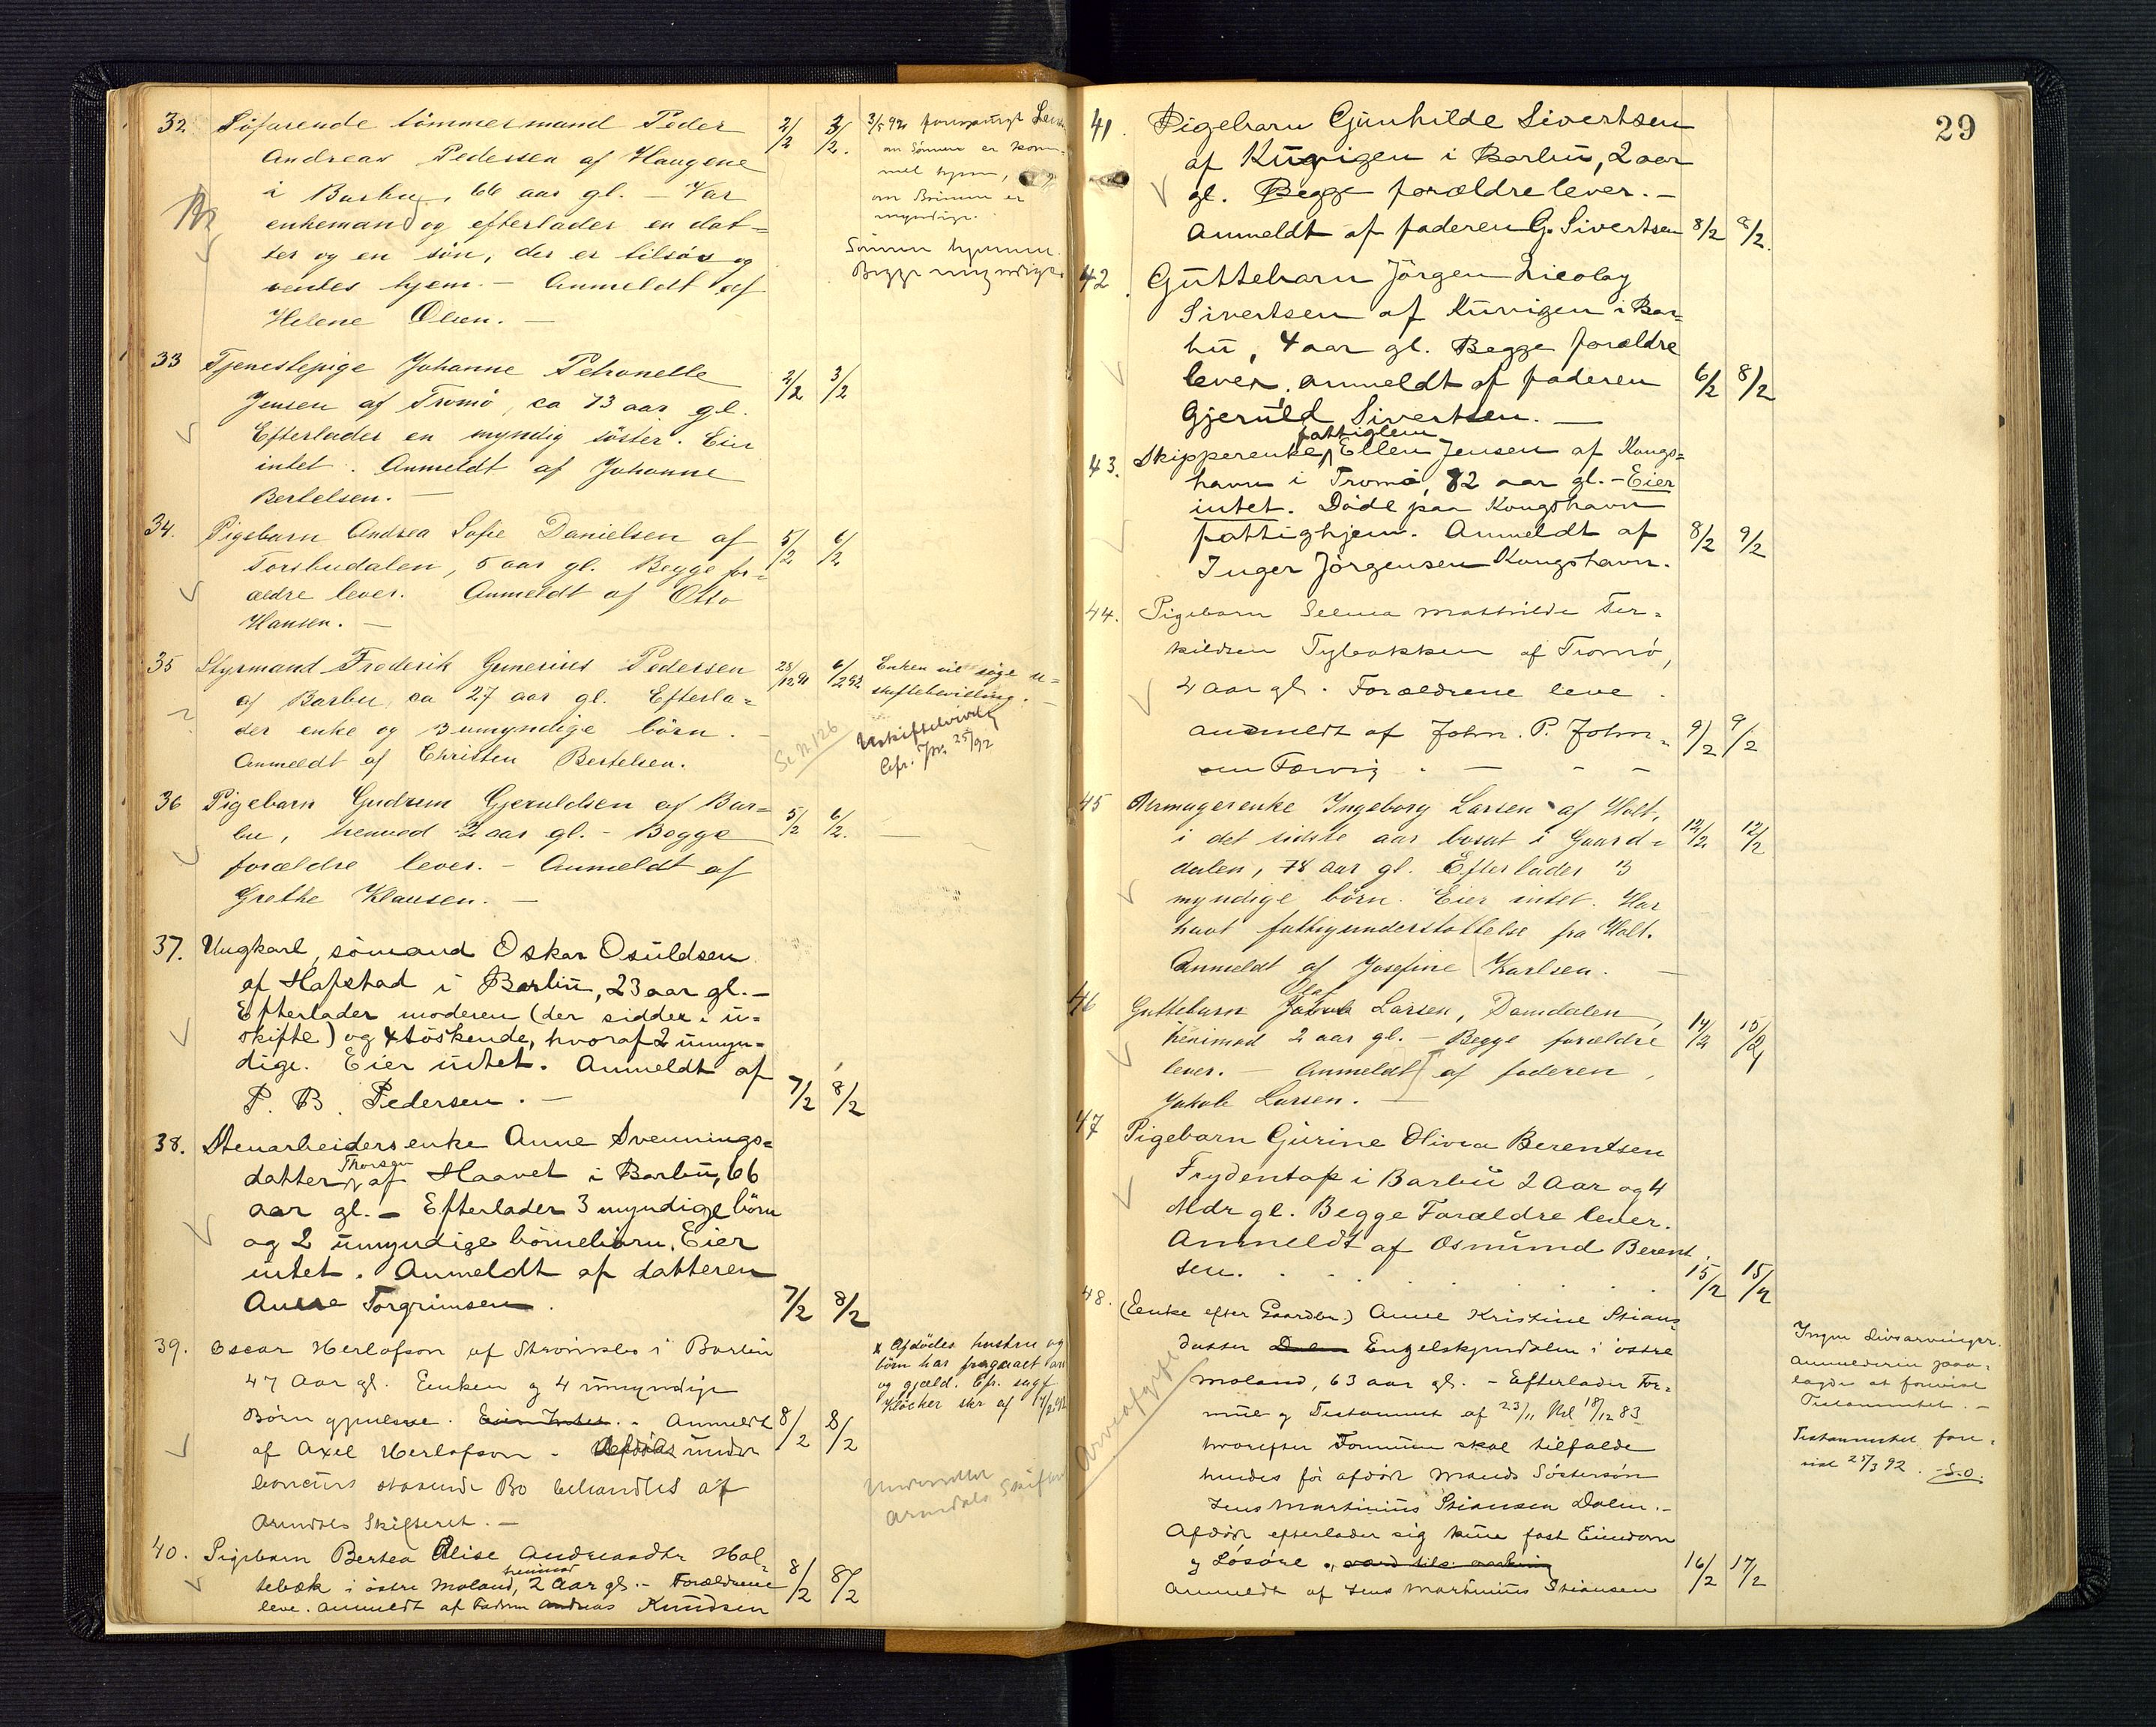 32 Söfarende tömmermand Peder
Andreas Pedersen af Haugene
i Barbu, 66 aar gl. – Var
enkemand og efterlader en dat=
ter og en sön, der er tilsös og
ventes hjem. – Anmeldt af
Helene Olsen. –
2/2 3/2.
3/5 92 forespurgt
om Sönnen er kom=
met hjem,
om Börnene er
myndige.
Sönnen hjemme.
Begge myndige.
33 Tjenestepige Johanne Petronelle
Jensen af Tromö, ca 73 aar gl.
Efterlader en myndig söster. Eier
intet. Anmeldt af Johanne
Bertelsen. –
2/2 3/2
34. Pigebarn Andrea Sofie Danielsen af
Torsbudalen, 5 aar gl. Begge for=
ældre lever. Anmeldt af Otto
Hansen. –
5/2 6/2
35 Styrmand Frederik Gunerius Pedersen
af Barbu, ca 27 aar gl. Efterla=
der enke og 3 umyndige börn. –
Anmeldt af Christen Bertelsen.
28/12 91 6/2 92
Enken vil söge u=
skiftebevilling. –
Se N. 126
Uskiftebevilg
Cfr. Jnr. 25/92
36 Pigebarn Gudrun Gjeruldsen af Bar=
bu, henved 2 aar gl. – Begge
forældre lever. – Anmeldt af
Grethe Klausen. –
5/2 6/2. –
37. Ungkarl, sömand Oskar Osuldsen
af Hafstad i Barbu, 23 aar gl. –
Efterlader moderen (der sidder i u=
skifte) og 4 söskende, hvoraf 2 umyn=
dige. Eier intet. Anmeldt af
P. B. Pedersen. –
7/2 8/2
38. Stenarbeidersenke Anne Svennings=
datter Thorsen af Haavet i Barbu, 66
aar gl. – Efterlader 3 myndige börn
og 2 umyndige börnebörn. Eier
intet. Anmeldt af datteren
Anne Torgrimsen.
7/2 8/2
39. Oscar Herlofson af Strömsbo i Barbu
47 Aar gl. Enken og 4 umyndige
Börn gjenleve. Eier Intet. – Anmeldt
af Axel Herlofson – Afdödes under
koncurs staaende Bo behandles af
Arendals Skifteret. –
8/2 8/2
x Afdödes hustru og
börn har fragaaet arv
og gjæld. Cfr. sagf
Klöcker skr af 17/2 92
Arendals Skifteret
40. Pigebarn Bertea Elise Andreasdtr Hol=
tebæk i östre Moland, henimod 2 Aar gl. – Forældrene
leve. Anmeldt af Faderen Andreas Knudsen
8/2 8/2
29
41. Pigebarn Gunhilde Sivertsen
af Kuvigen i Barbu, 2 aar
gl. Begge forældre lever. –
Anmeldt af faderen G. Sivertsen
8/2 8/2.
42. Guttebarn Jörgen Nicolay
Sivertsen af Kuvigen i Bar=
bu, 4 aar gl. Begge forældre
lever. Anmeldt af faderen
Gjeruld Sivertsen. –
6/2 8/2
43. Skipperenke, fattiglem Ellen Jensen af Kongs=
havn i Tromö, 82 aar gl. – Eier
intet. Döde paa Kongshavn
fattighjem. Anmeldt af
Inger Jörgensen Kongshavn.
8/2 9/2
44. Pigebarn Selma Mathilde Ter=
kildsen Tybakken af Tromö,
4 aar gl. Forældrene leve.
Anmeldt af John. P. John=
sen Færvig. – – –
9/2 9/2
45 Almuesenke Ingeborg Larsen af Holt,
i det sidste aar bosat i Gaard=
dalen, 78 aar gl. Efterlader 3
myndige börn. Eier intet. Har
havt fattigunderstöttelse fra Holt.
Anmeldt af Josefine Karlsen. –
12/2 12/2
46 Guttebarn Olaf Jakob Larsen, Damdalen,
henimod 2 aar gl. – Begge forældre
lever. – Anmeldt af faderen,
Jakob Larsen. –
14/2 15/2
47 Pigebarn Gurine Olivia Berentsen
Frydentop i Barbu 2 Aar og 4
Mdr gl. Begge Forældre lever.
Anmeldt af Osmund Berent
sen.
15/2 15/2
48. (Enke efter Gaardbr.) Anne Kristine Stians
datter Dalen Engelskjöndalen i östre
Moland, 63 aar gl. – Efterlader For=
mue og Testament af 23/11 Nel 18/12 83
hvorefter Formuen skal tilfalde
hendes för afdöde Mands Söstersön
Jens Martinius Stiansen Dalen. –
Afdöde efterlader sig kun fast Eiendom
og Lösöre.
Anmeldt af Jens Martinius Stiansen
16/2 17/2
Arveafgift
Ingen Livsarvinger.
Anmelderen paa=
lagdes at forevise
Testamentet. –
Testamentet fore=
vist 25/3 92. S.O.